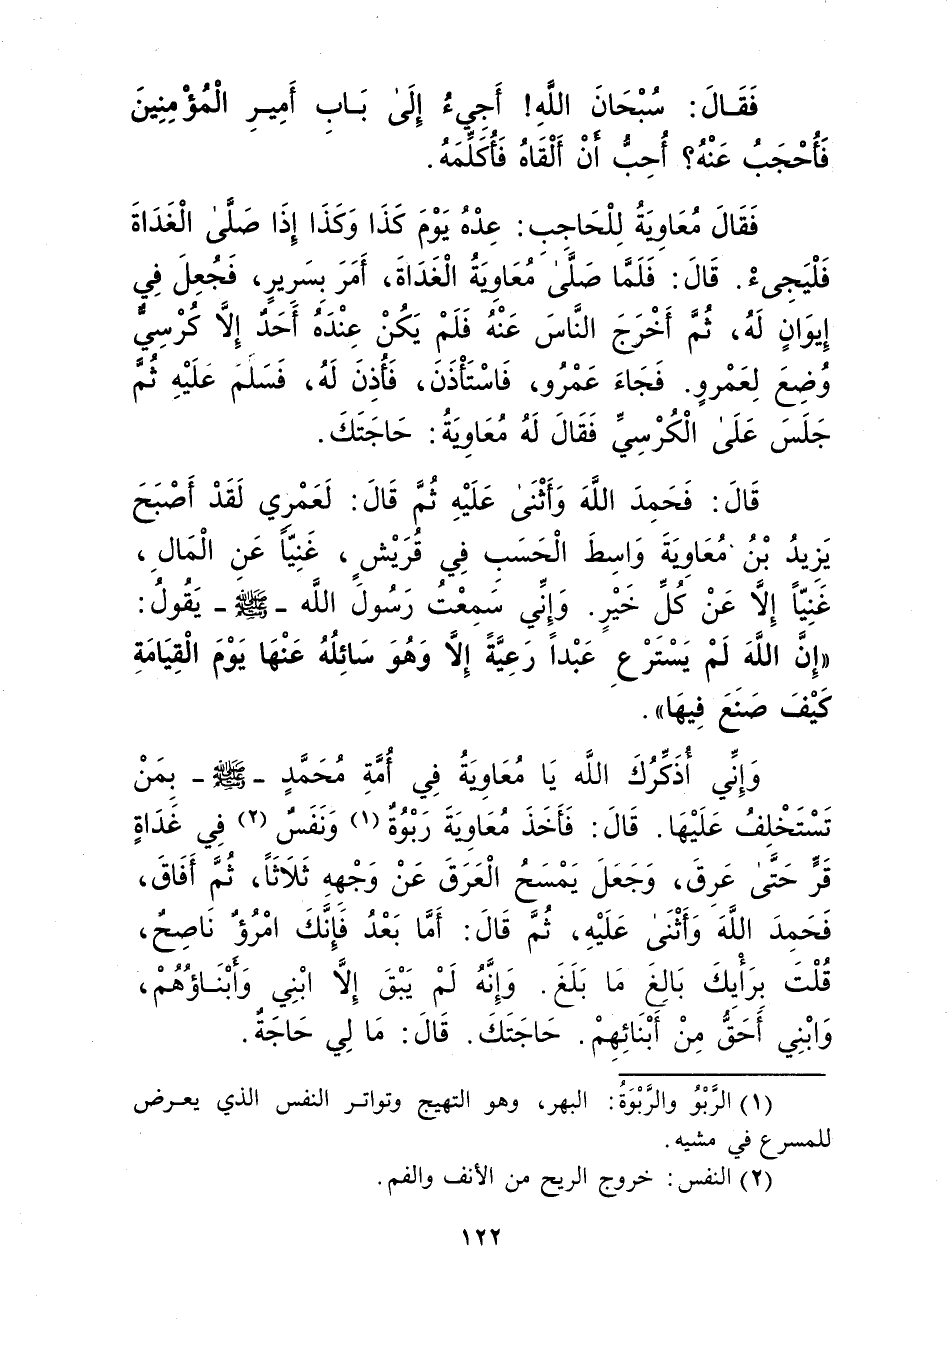 فَقَالَ: سُبْحَانَ اللَّهِ! أَجِيءُ إِلَىٰ بَابِ أَمِيرِ الْمُؤْمِنِينَ
فَأُحْجَبُ عَنْهُ؟ أُحِبُّ أَنْ أَلْقَاهُ فَأُكَلِّمَهُ.
فَقَالَ مُعَاوِيَةُ لِلْحَاجِبِ: عِدْهُ يَوْمَ كَذَا وَكَذَا إِذَا صَلَّىٰ الْغَدَاةَ
فَلْيَجِىءْ. قَالَ: فَلَمَّا صَلَّىٰ مُعَاوِيَةُ الْغَدَاةَ، أَمَرَ بِسَرِيرٍ، فَجُعِلَ فِي
إِيوَانٍ لَهُ، ثُمَّ أَخْرَجَ النَّاسَ عَنْهُ فَلَمْ يَكُنْ عِنْدَهُ أَحَدٌ إِلَّا كُرْسِيٌّ
وُضِعَ لِعَمْرٍو. فَجَاءَ عَمْرُو، فَاسْتَأْذَنَ، فَأُذِنَ لَهُ، فَسَلَّمَ عَلَيْهِ ثُمَّ
جَلَسَ عَلَىٰ الْكُرْسِيِّ فَقَالَ لَهُ مُعَاوِيَةُ: حَاجَتَكَ.
قَالَ: فَحَمِدَ اللَّهَ وَأَثْنَىٰ عَلَيْهِ ثُمَّ قَالَ: لَعَمْرِي لَقَدْ أَصْبَحَ
يَزِيدُ بْنُ مُعَاوِيَةَ وَاسِطَ الْحَسَبِ فِي قُرَيْشٍ، غَنِيّاً عَنِ الْمَالِ،
غَنِيّاً إِلَّا عَنْ كُلِّ خَيْرٍ. وَإِنِّي سَمِعْتُ رَسُولَ اللَّه ـ ﷺ ـ يَقُولُ:
«إِنَّ اللَّهَ لَمْ يَسْتَرْعِ عَبْداً رَعِيَّةً إِلَّا وَهُوَ سَائِلُهُ عَنْهَا يَوْمَ الْقِيَامَةِ
كَيْفَ صَنَعَ فِيهَا».
وَإِنِّي أُذَكِّرُكَ اللَّه يَا مُعَاوِيَةُ فِي أُمَّةِ مُحَمَّدٍ ـ ﷺ ـ بِمَنْ
تَسْتَخْلِفُ عَلَيْهَا. قَالَ: فَأَخَذَ مُعَاوِيَةَ رَبْوُةٌ (١) وَنَفَسٌ (٢) فِي غَدَاةٍ
قَرٍّ حَتَّىٰ عَرِقَ، وَجَعَلَ يَمْسَحُ الْعَرَقَ عَنْ وَجْهِهِ ثَلَاثَاً، ثُمَّ أَفَاقَ،
فَحَمِدَ اللَّهَ وَأَثْنَىٰ عَلَيْهِ، ثُمَّ قَالَ: أَمَّا بَعْدُ فَإِنَّكَ امْرُؤٌ نَاصِحٌ،
قُلْتَ بِرَأْيِكَ بَالِغَ مَا بَلَغَ. وَإِنَّهُ لَمْ يَبْقَ إِلَّا ابْنِي وَأَبْنَاؤُهُمْ،
وَابْنِي أَحَقُّ مِنْ أَبْنَائِهِمْ. حَاجَتَكَ. قَالَ: مَا لِي حَاجَةٌ.
(١) الرَّبْوُ والرَّبْوَةُ: البهر، وهو التهيج وتواتر النفس الذي يعرض
للمسرع في مشيه.
(٢) النفس: خروج الريح من الأنف والفم.
١٢٢